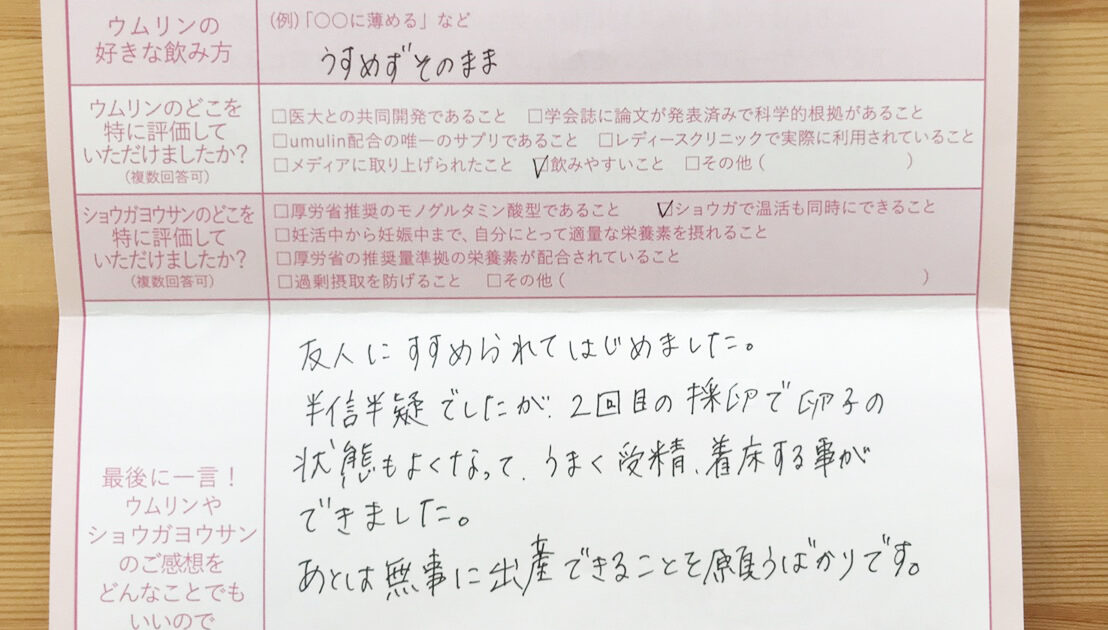 ウムリンの
好きな飲み方
(例)「〇〇に薄める」など
うすめずそのまま
ウムリンのどこを
特に評価して
いただけましたか?
(複数回答可)
□医大との共同開発であること □学会誌に論文が発表済みで科学的根拠があること
□umulin配合の唯一のサプリであること □レディースクリニックで実際に利用されていること
□メディアに取り上げられたこと ☑飲みやすいこと □その他( )
ショウガヨウサンのどこを
特に評価して
いただけましたか?
(複数回答可)
□厚労省推奨のモノグルタミン酸型であること ☑ショウガで温活も同時にできること
□妊活中から妊娠中まで、自分にとって適量な栄養素を摂れること
□厚労省の推奨量準拠の栄養素が配合されていること
□過剰摂取を防げること □その他( )
最後に一言!
ウムリンや
ショウガヨウサン
のご感想を
どんなことでも
いいので
友人にすすめられてはじめました。
半信半疑でしたが、2回目の採卵で卵子の
状態もよくなって、うまく受精、着床する事が
できました。
あとは無事に出産できることを願うばかりです。